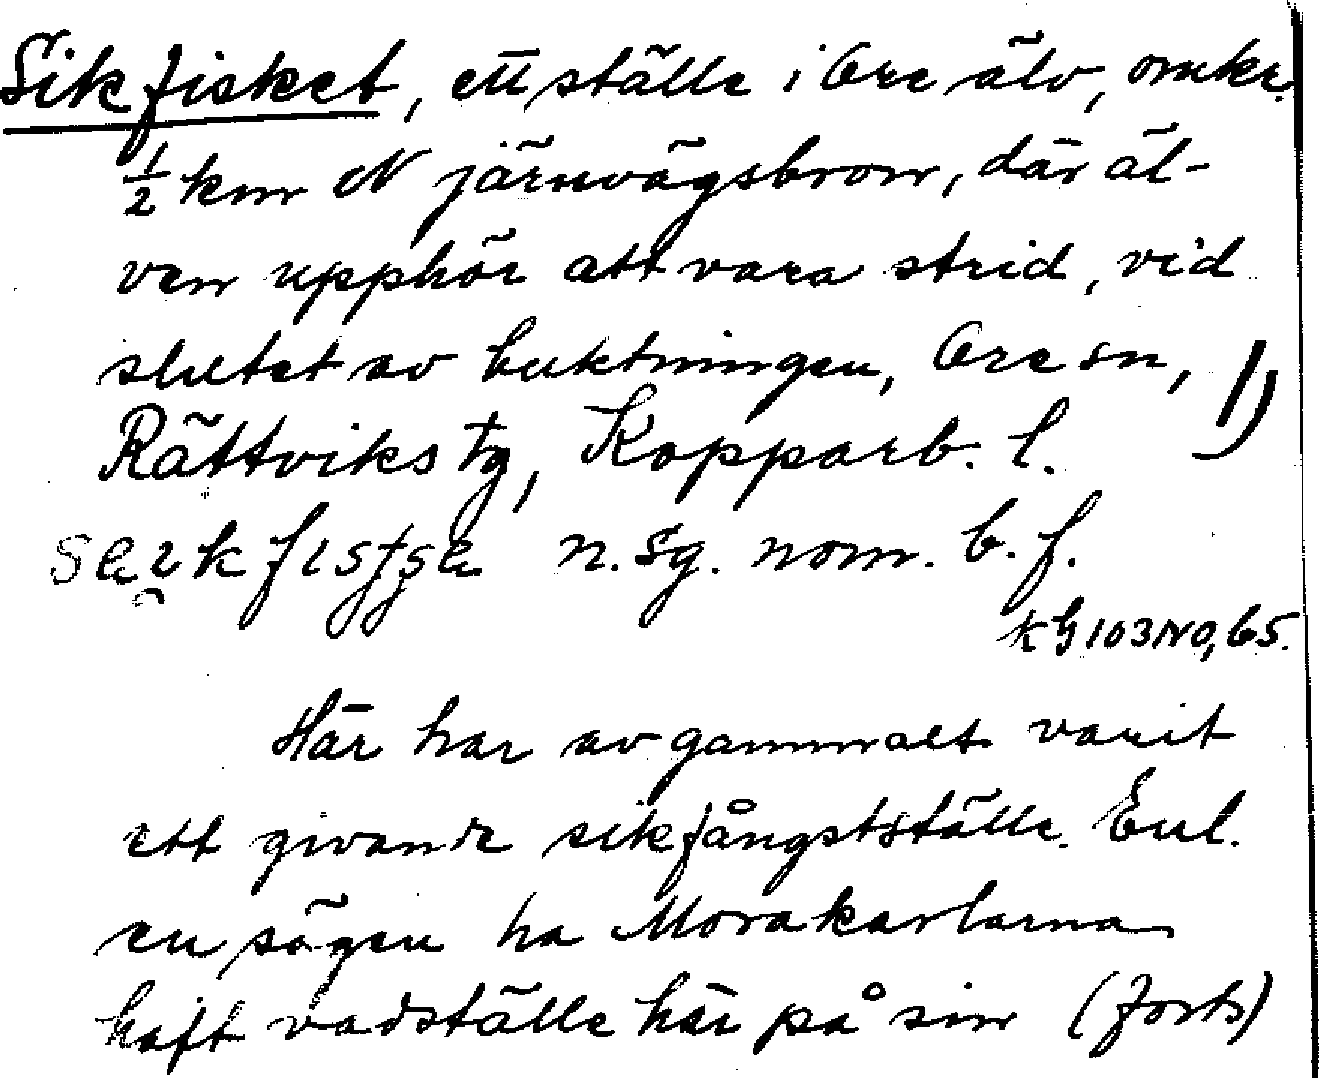 Sikfisket, ett ställe i Ore älv, omkr.
½ km N järnvägsbron, där äl-
ven upphör att vara strid, vid
slutet av buktningen, Ore sn, 1)
Rättviks tg, Kopparb. l.
n. sg. nom. b. f.
KG 103 No, 65.
Här har av gammalt varit
ett givande sikfångstställe. Enl.
en sägen ha Morakarlarna
haft vadställe här på sin (forts)